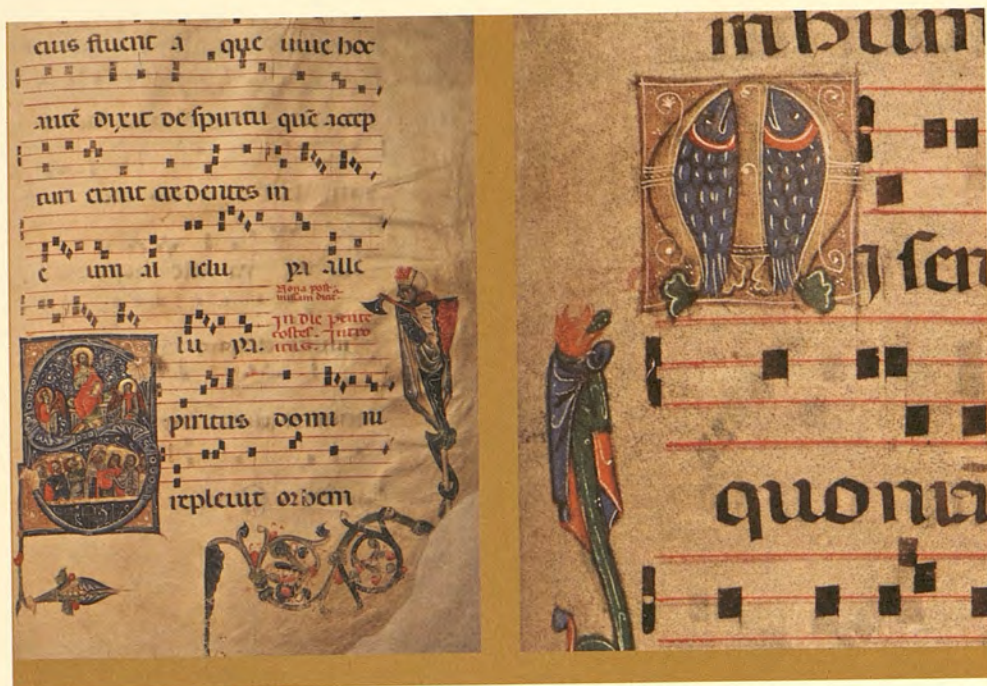 eius fluent aque uiue hoc
autē dixit de spiritu quē accep
turi erant credentes in
e um al lelu ya alle
Nona post
missam dicit.
In die pente
costes. Intro
itus.
lu ya.
Spiritus domi ni
repleuit orbem
in hium
quoniā